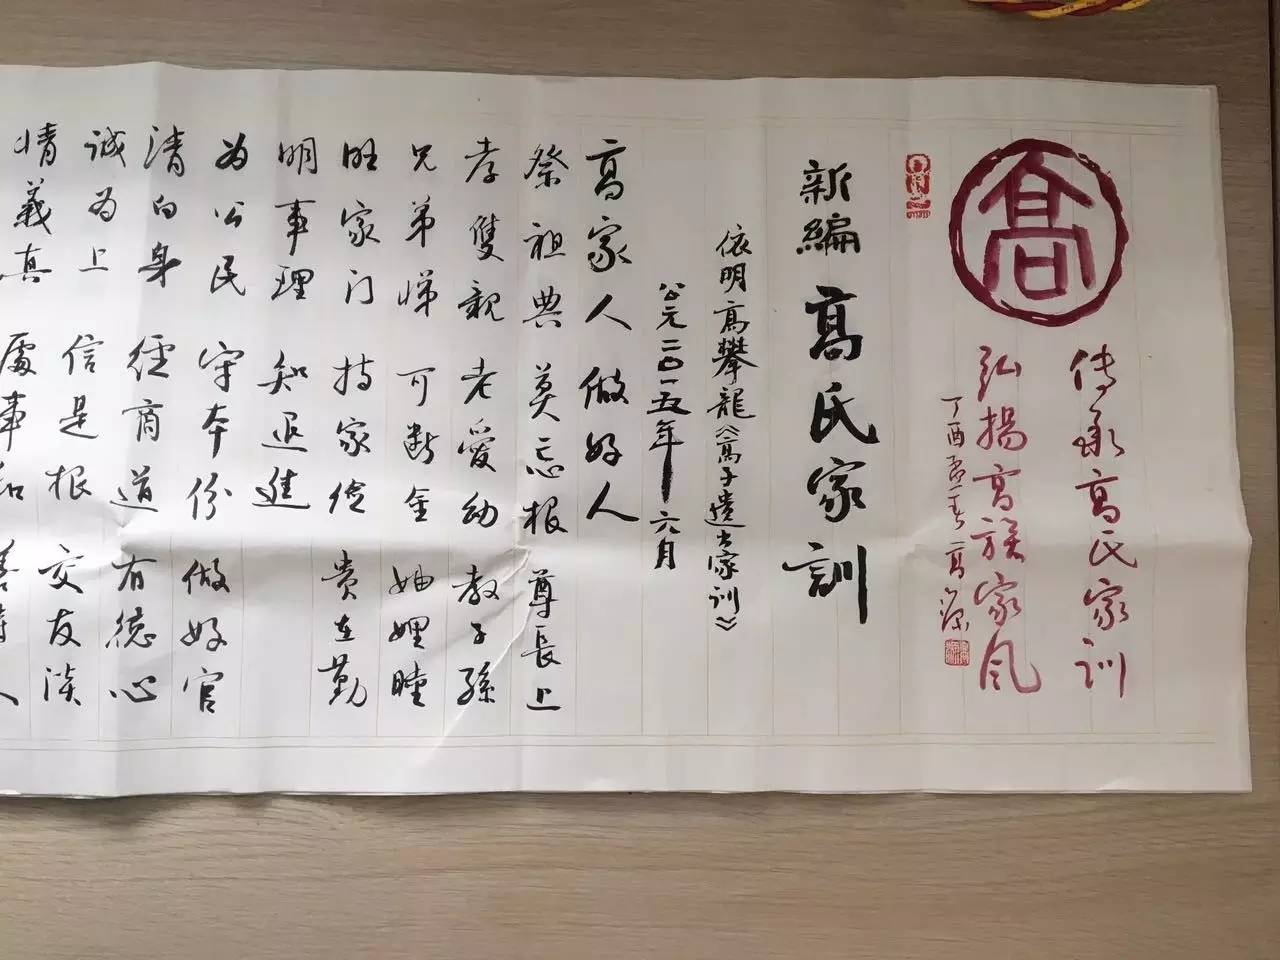 髙
传承高氏家训
弘揚高族家风
丁酉孟春高源
新編髙氏家訓
依明高攀龍《高子遺书家训》
公元二〇一五年六月
高家人做好人
祭祖典 莫忘根 尊長上
孝雙親 老愛幼 教子孫
兄弟悌 可断金 妯娌睦
旺家门 持家俭 贵在勤
明事理 知退進
为公民 守本份 做好官
清白身 經商道 有德心
诚为上 信是根 交友淡
情義真 處事和 善待人